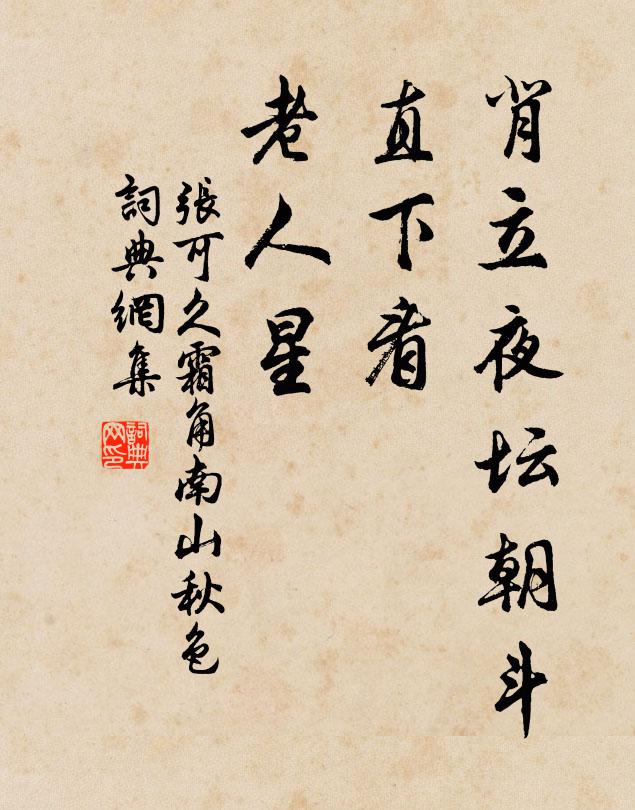 肖立夜坛朝斗
直下看
老人星
張可久霜角南山秋色
詞典網集
詞典网印